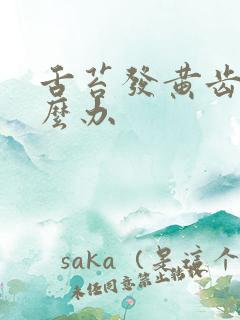 舌苔發黄齿
麼办
saka（是這个
未经同意禁止转载